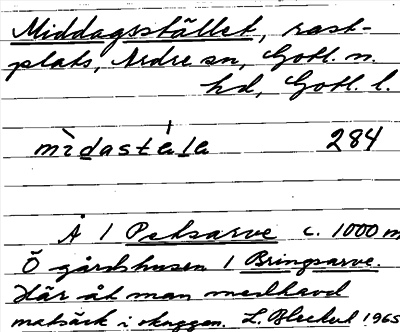 Middagsställed, rast-
plats, Ardre sn, Gotl. n.
hd, Gotl. l.
mìdastéla 284
Å 1 Petsarve c. 1000 m
Ö gårdshusen 1 Bringsarve.
Här åt man medhavd
matsäck i skuggen. L. 1965